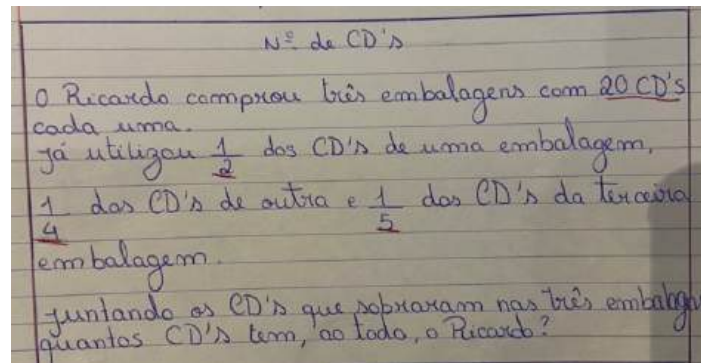 Nº de CD's
O Ricardo comprou três embalagens com 20 CD's
cada uma.
Já utilizou 1/2 dos CD's de uma embalagem,
1/4 dos CD's de outra e 1/5 dos CD's da terceira
embalagem.
Juntando os CD's que sobraram nas três embalagen
quantos CD's tem, ao todo, o Ricardo?